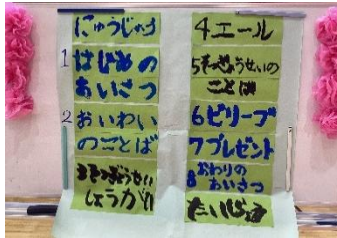 にゅうじょう
1 はじめの
あいさつ
2 おいわい
のことば
3 そつぎょうせい
しょうかい
4 エール
5 そつぎょうせいの
ことば
6 ビリーブ
7 プレゼント
8 おわりの
あいさつ
たいじょう